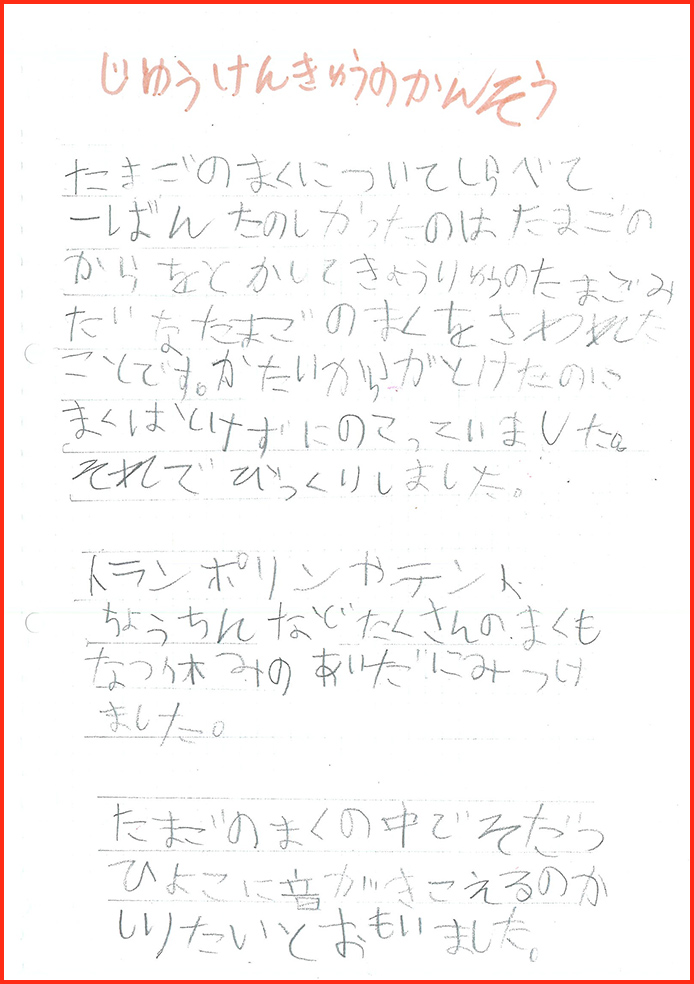 じゆうけんきゅうのかんそう
たまごのまくについてしらべて
一ばんたのしかったのはたまごの
からをとかしてきょうりゅうのたまごみ
たいなたまごのまくをさわれた
ことです。かたいからがとけたのに
まくはとけずにのこっていました。
それでびっくりしました。
トランポリンやテント
ちょうちんなどたくさんのまくも
なつ休みのあいだにみつけ
ました。
たまごのまくの中でそだつ
ひよこに音がきこえるのか
しりたいとおもいました。